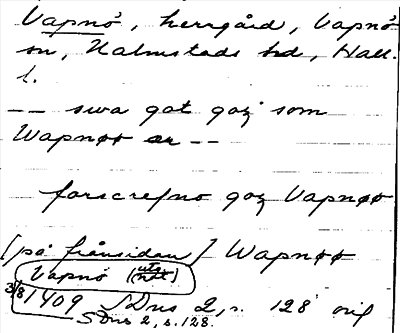 Vapnö, herrgård, Vapnö
sn, Halmstads hd, Hall.
l.
-- swa got goz som
Wapnøø ær --
forscrefno goz Vapnøø
[på frånsidan] Wapnøø
Vapnö
3/8 1409 SDns 2, s. 128 orig
SDns 2, s. 128.